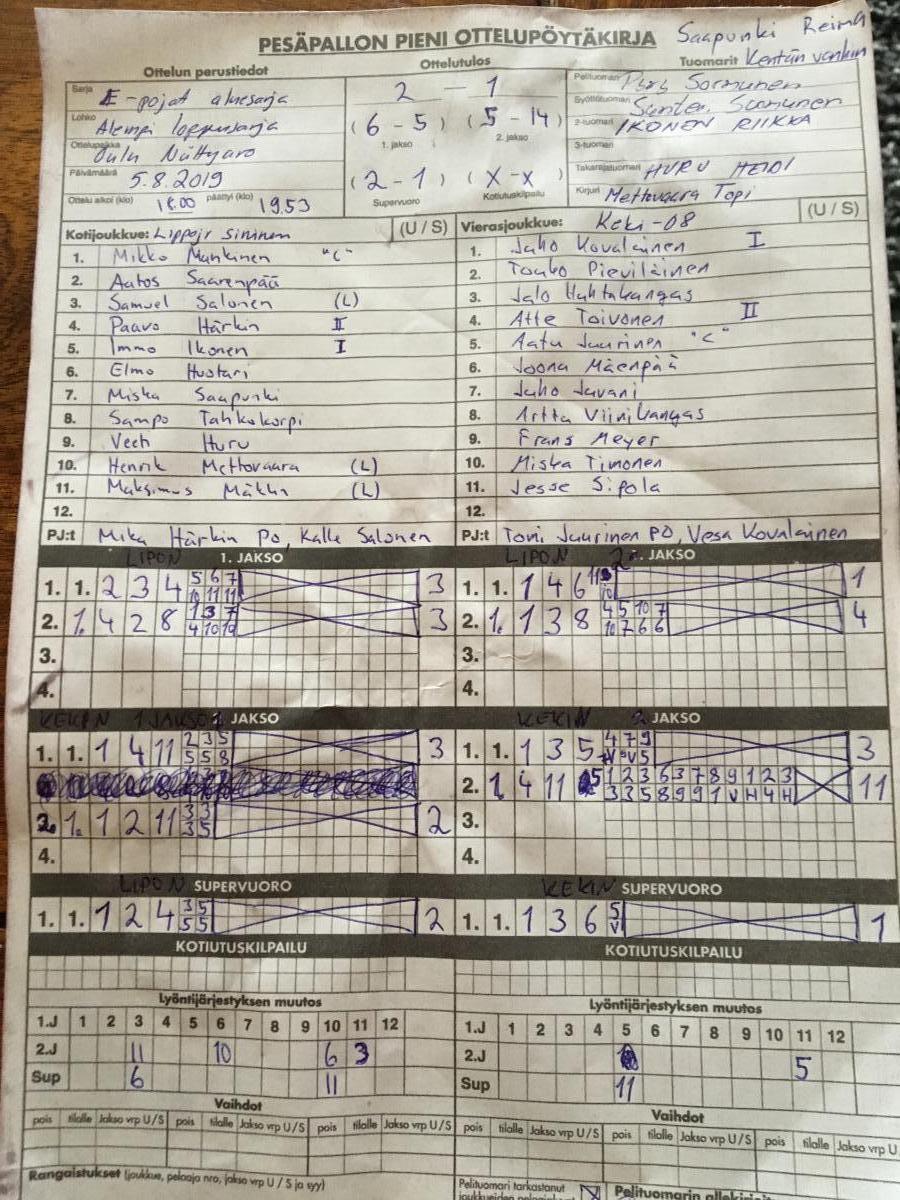 PESÄPALLON PIENI OTTELUPÖYTÄKIRJA Saapunki Reima
Kentän vanhin
Ottelun perustiedot
Ottelutulos
Tuomarit
Sarja E-pojat aluesarja
Lohko Alempi loppusarja
Ottelupaikka Oulu Nättyaro
Päivämäärä 5.8.2019
Ottelu alkoi (klo) 18.00 päättyi (klo) 19.53
2 — 1
(6 - 5) (5 - 14)
1. jakso 2. jakso
(2 - 1) (X - X)
Supervuoro Kotiutuskilpailu
Pelituomari Sormunen
Syöttötuomari Sormunen
2-tuomari IKONEN RIIKKA
3-tuomari
Takarajatuomari HURU HEIDI
Kirjuri Mettovaara Topi
Kotijoukkue: Lippojr sininen (U / S)
1. Mikko Mankinen "C"
2. Aatos Saarenpää
3. Samuel Salonen (L)
4. Paavo Härkin II
5. Immo Ikonen I
6. Elmo Huotari
7. Miska Saapunki
8. Sampo Tahkokorpi
9. Veeti Huru
10. Henrik Mettovaara (L)
11. Maksimus Mäkkin (L)
12.
PJ:t Mika Härkin PO, Kalle Salonen
Vierasjoukkue: Keki-08 (U / S)
1. Juho Kovalainen I
2. Touko Pieviläinen
3. Jalo Huhtakangas
4. Atte Toivonen II
5. Aatu Juurinen "C"
6. Joona Mäenpää
7. Juho Juvani
8. Arttu Viinikangas
9. Frans Meyer
10. Miska Timonen
11. Jesse Sipola
12.
PJ:t Toni Juurinen PO, Vesa Kovalainen
LIPON 1. JAKSO
1. 1. 2 3 4 5 6 7 3
10 11 11
2. 1. 4 2 8 1 3 7 3
4 10 10
3.
4.
LIPON 2. JAKSO
1. 1. 1 4 6 1
2. 1. 1 3 8 4 5 10 7 4
10 7 6 6
3.
4.
KEKIN 1 JAKSO JAKSO
1. 1. 1 4 11 2 3 5 3
5 5 8
2. 1. 1 2 11 3 3 2
3 5
4.
KEKIN 2. JAKSO
1. 1. 1 3 5 4 7 9 3
V 5
2. 1. 4 11 5 1 2 3 6 3 7 8 9 1 2 3 11
3 3 5 8 9 9 1 V H 4 H
3.
4.
LIPON SUPERVUORO
1. 1. 1 2 4 3 5 2
5 5
KEKIN SUPERVUORO
1. 1. 1 3 6 5 1
V
KOTIUTUSKILPAILU
KOTIUTUSKILPAILU
Lyöntijärjestyksen muutos
1.J 1 2 3 4 5 6 7 8 9 10 11 12
2.J 11 10 6 3
Sup 6 11
Lyöntijärjestyksen muutos
1.J 1 2 3 4 5 6 7 8 9 10 11 12
2.J 5
Sup 11
Vaihdot
pois tilalle Jakso vrp U / S pois tilalle Jakso vrp U / S pois tilalle Jakso vrp U / S
Vaihdot
pois tilalle Jakso vrp U / S pois tilalle Jakso vrp U / S pois tilalle Jakso vrp U
Rangaistukset (joukkue, pelaaja nro, jakso vrp U / S ja syy)
Pelituomari tarkastanut